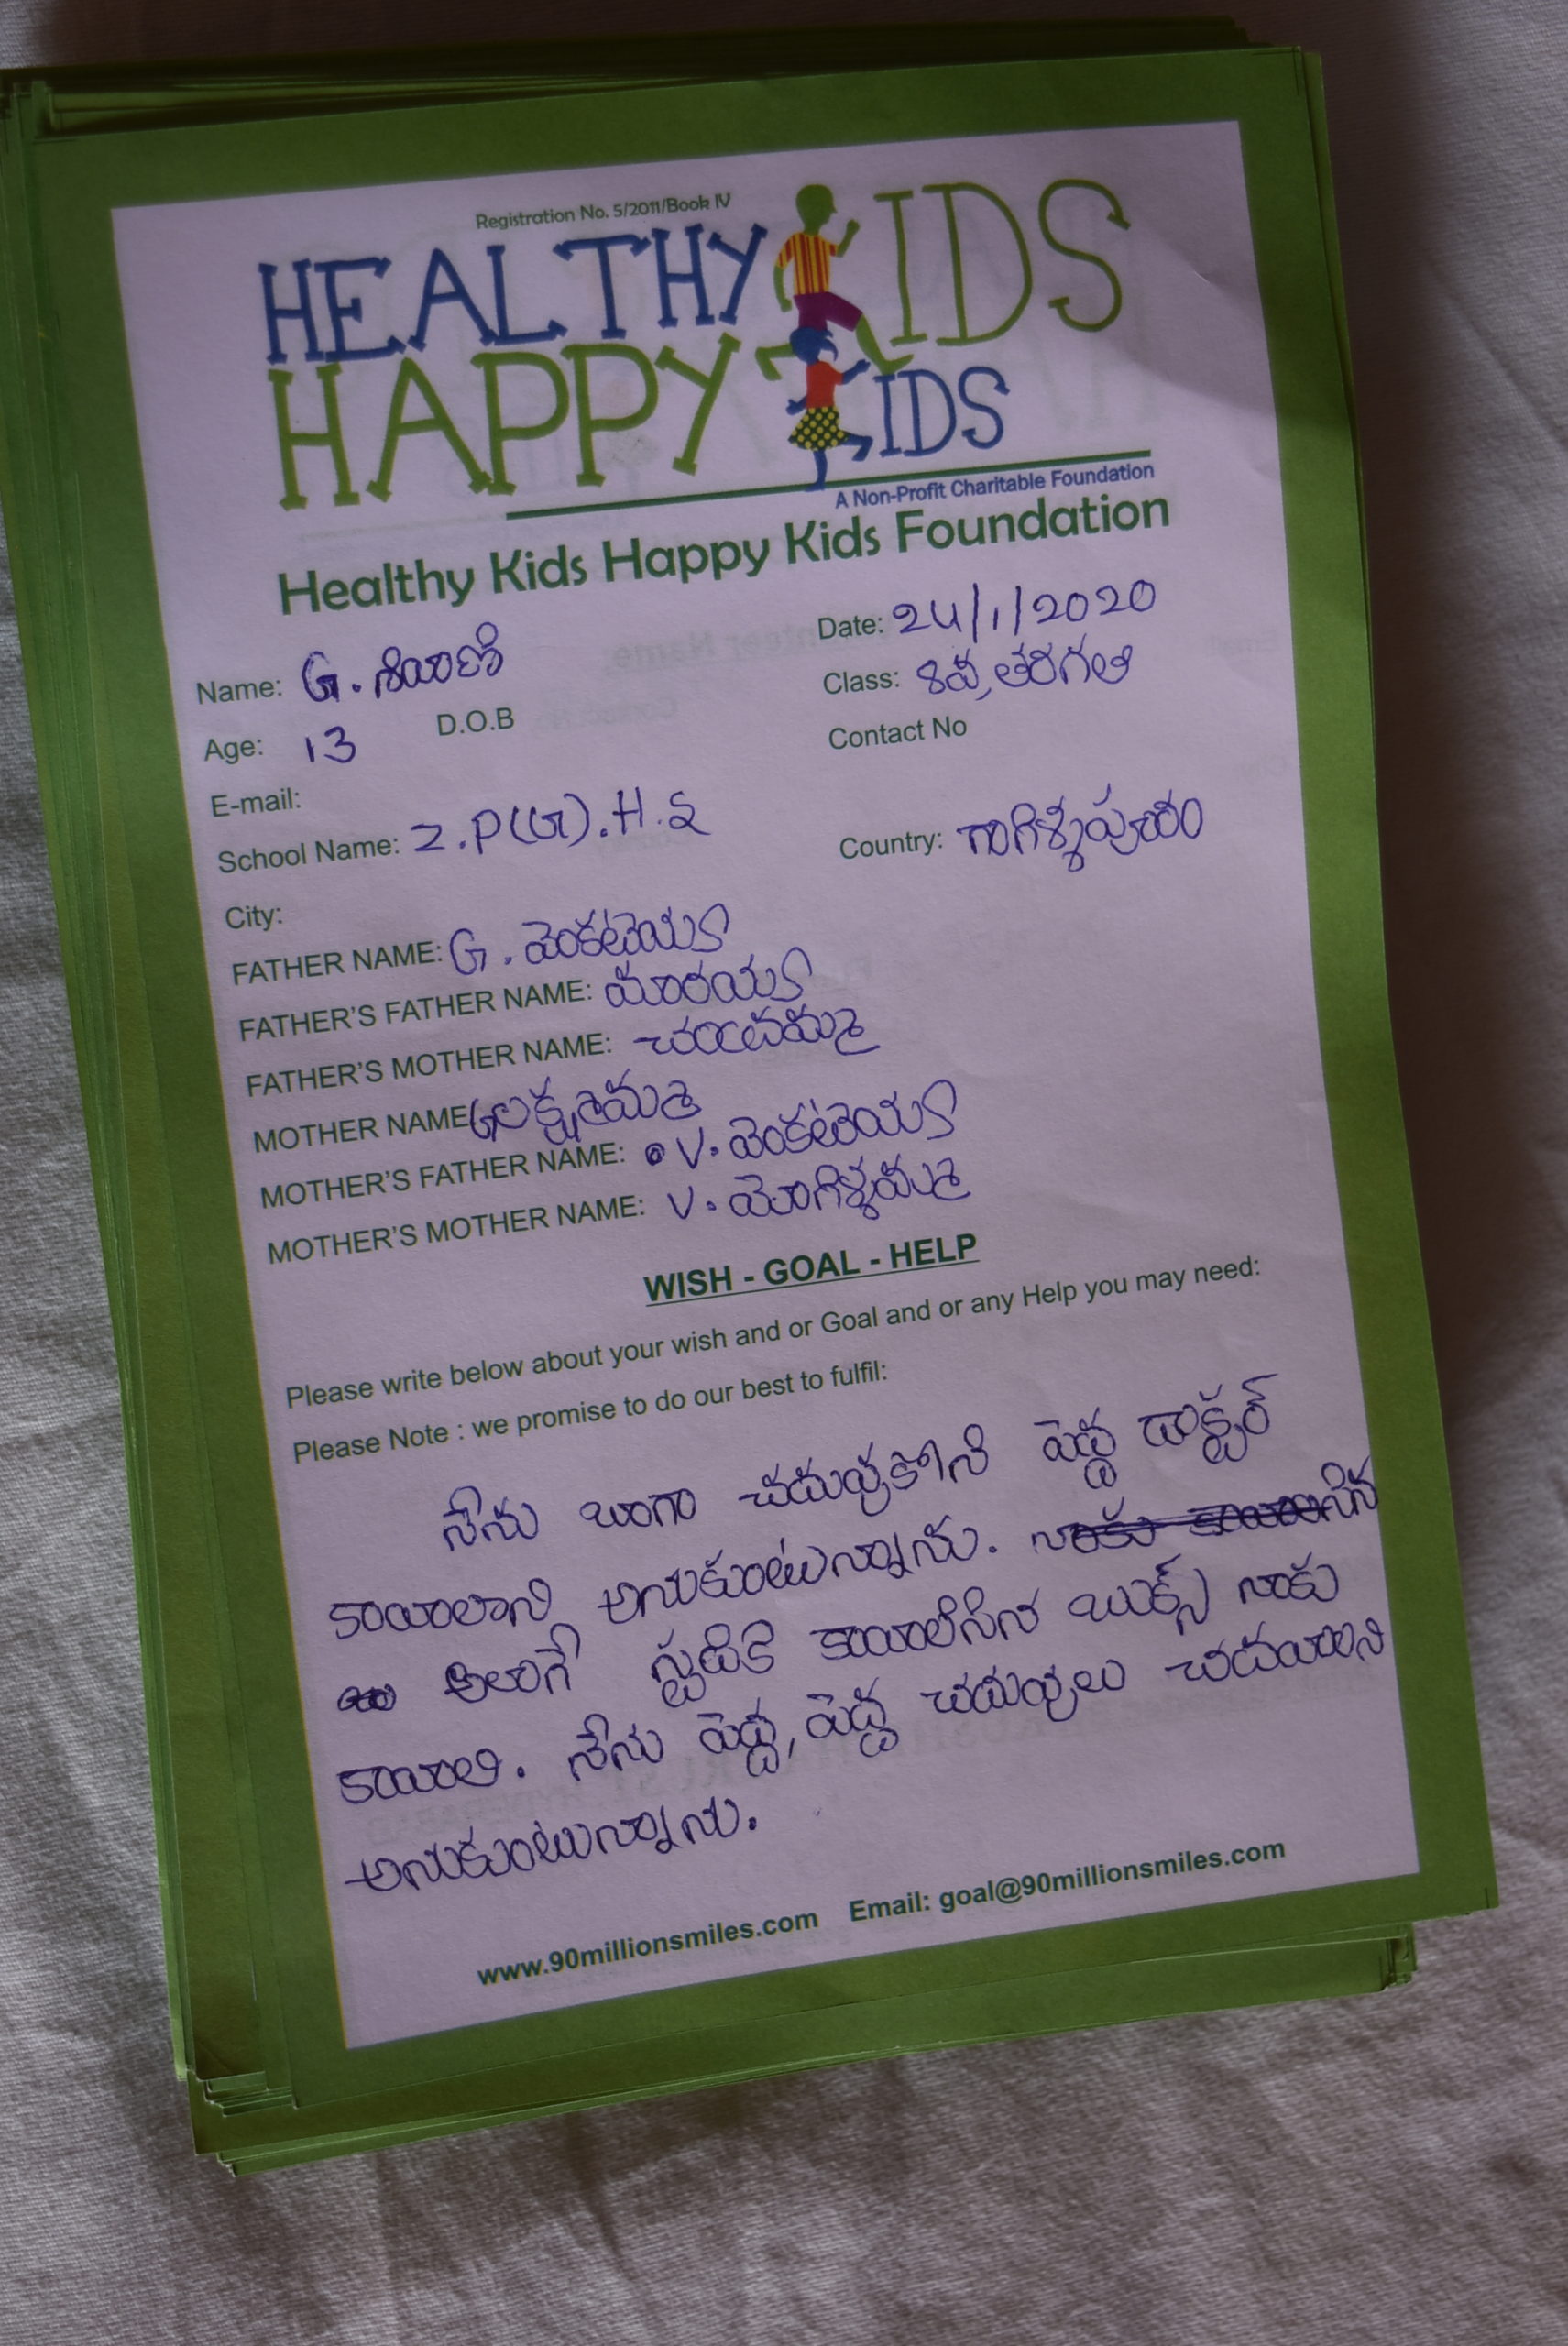 Registration No. 5/2011/Book IV
HEALTHY KIDS
HAPPY KIDS
A Non-Profit Charitable Foundation
Healthy Kids Happy Kids Foundation
Date: 24/1/2020
Name: G.
Class: 8వ, తరగతి
Age: 13 D.O.B
Contact No
E-mail:
School Name: Z.P(G).H.S
Country:
City:
FATHER NAME: G. వెంకటయ్య
FATHER'S FATHER NAME: మారయ్య
FATHER'S MOTHER NAME:
MOTHER NAME G లక్ష్మమ్మ
MOTHER'S FATHER NAME: V. వెంకటయ్య
MOTHER'S MOTHER NAME: V.
WISH - GOAL - HELP
Please write below about your wish and or Goal and or any Help you may need:
Please Note : we promise to do our best to fulfil:
నేను బాగా చదువుకోని పెద్ద డాక్టర్
కావాలాని అనుకుంటున్నాను.
అలాగే స్టడికి కావాలిసిన బుక్స్ నాకు
కావాలి. నేను పెద్ద, పెద్ద చదువులు చదవాలని
అనుకుంటున్నాను.
www.90millionsmiles.com Email: goal@90millionsmiles.com